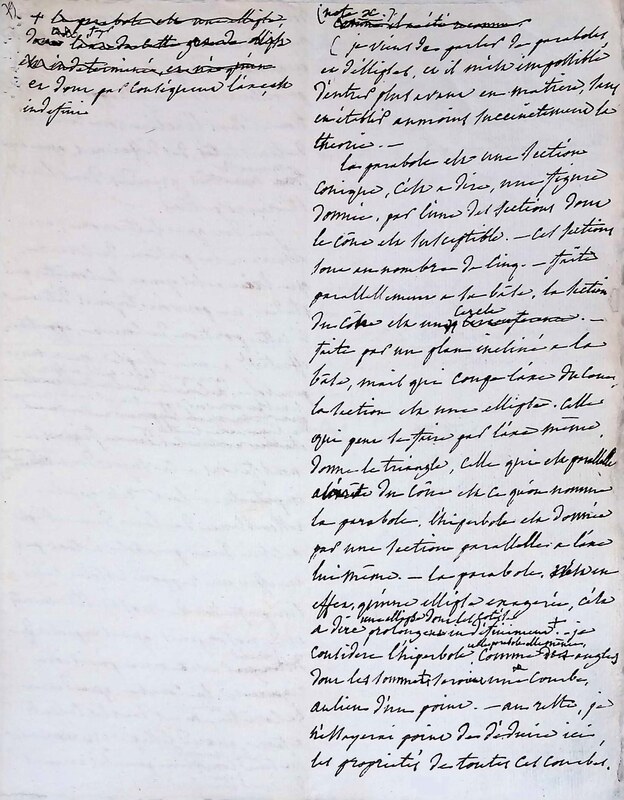 + la parabole est une ellipse
dont l'axe
indeterminée,
et dont par consequent l'axe est
indefini
(note x.)
(je viens de parler de paraboles
et d'ellipses, et il m'est impossible
d'entrer plus avant en matiere, sans
en établir au moins succinctement la
theorie. —
la parabole est une section
conique, c'est a dire, une figure
donnée, par l'une des sections dont
le cône est susceptible. — Ces sections
sont au nombre de cinq. — faite
parallellement a la bâse, la section
du cône est un cercle. —
faite par un plan incliné a la
bâse, mais qui coupe l'axe du cone,
la section est une ellipse. Celle
qui peut se faire par l'axe même,
donne le triangle, celle qui est parallelle
a l'un côté du cône est ce qu'on nomme
la parabole. l'hiperbole est donnée
par une section parallelle a l'axe
lui même. — la parabole, n'est en
effet, qu'une ellipse exagerée, c'est
a dire une ellipse dont les côtés
prolongés indefiniment. + je
considere l'hiperbole comme des angles
dont les sommets seroient une courbe,
au lieu d'un point. — au reste, je
n'essayerai point de déduire ici
les proprietés de toutes ces courbes.